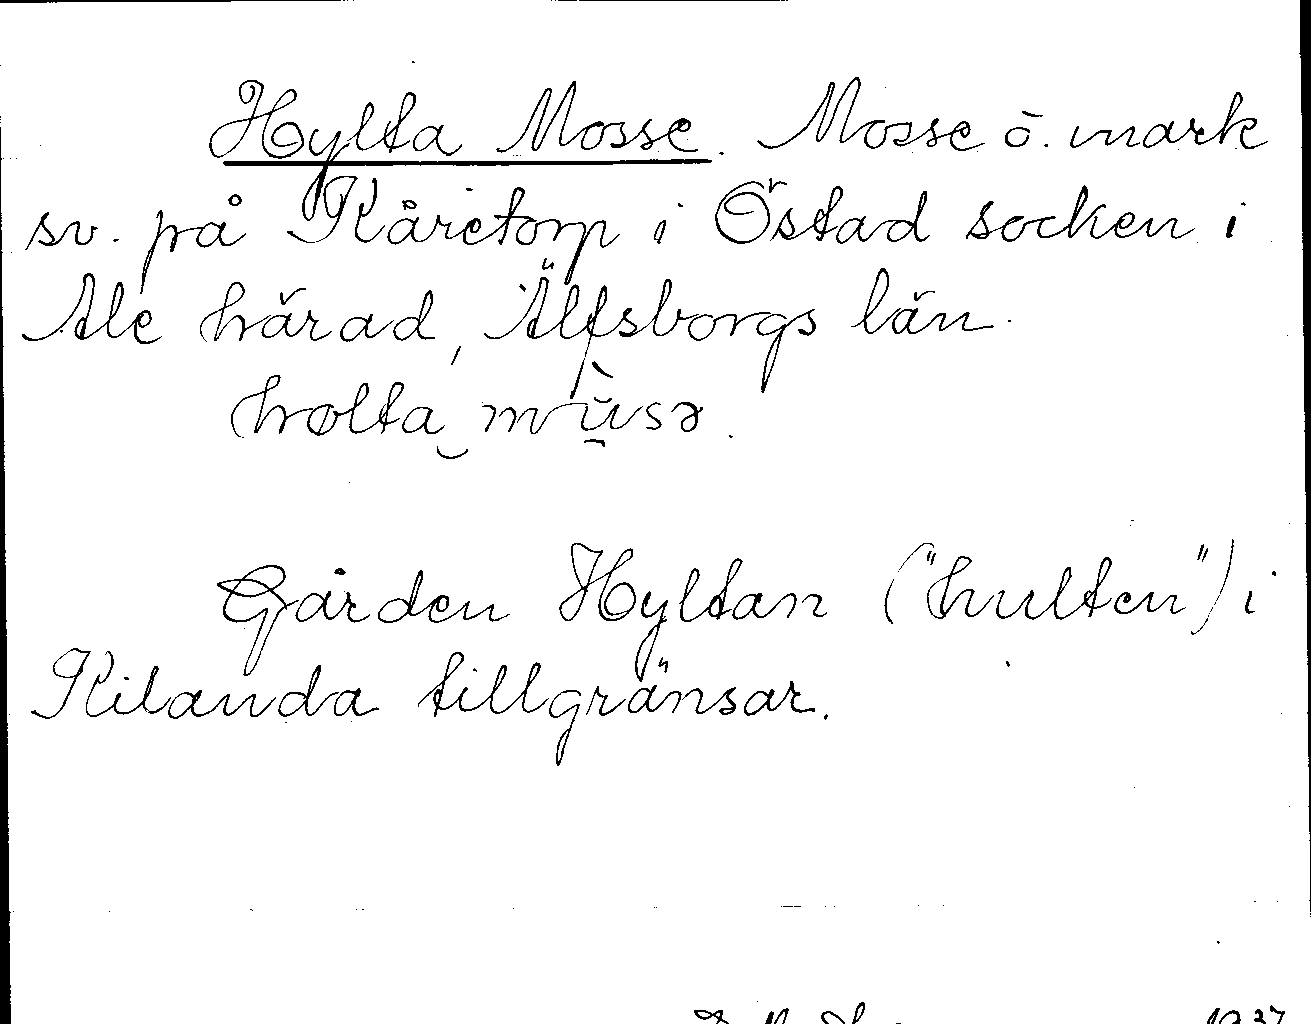 Hylta Mosse. Mosse o. mark
sv. på Kåretorp i Östad socken i
Ale härad, Älfsborgs län.
Gården Hyltan ("hulten") i
Kilanda tillgränsar.
1937